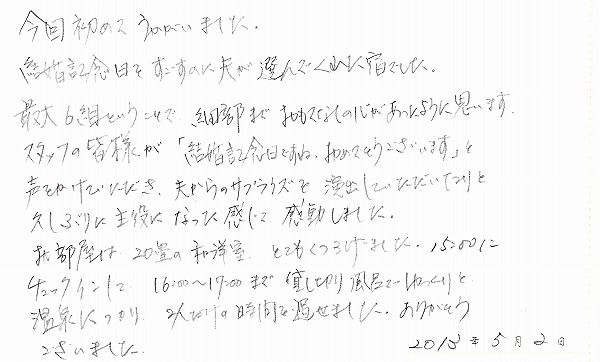 今回初めてうかがいました。
結婚記念日をすごすのに夫が選んでくれた宿でした。
最大6組ということで 細部までおもてなしの心があったように思います。
スタッフの皆様が「結婚記念日ですね。おめでとうございます」と
声をかけていただき、夫からのサプライズを演出していただいたりと
久しぶりに主役になった感じで感動しました。
お部屋は 20畳の和洋室 とてもくつろげました。15:00に
チェックインして 16:00〜17:00まで 貸し切り風呂でゆっくりと
温泉につかり 2人だけの時間を過せました。ありがとう
ございました。
2013年5月2日